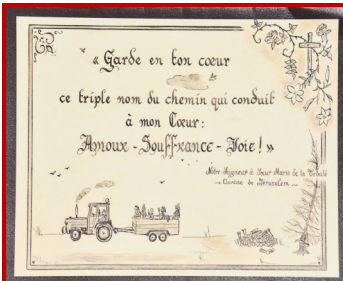 « Garde en ton cœur
ce triple nom du chemin qui conduit
à mon Cœur:
Amour - Souffrance - Joie! »
Notre-Seigneur à Sœur Marie de la Trinité
Clarisse de Jérusalem